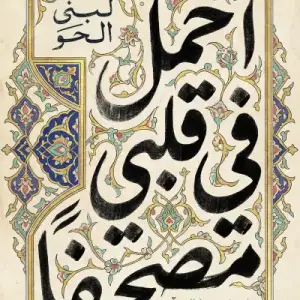 لبنى
الحو
احمل
في قلبي
مصحفًا